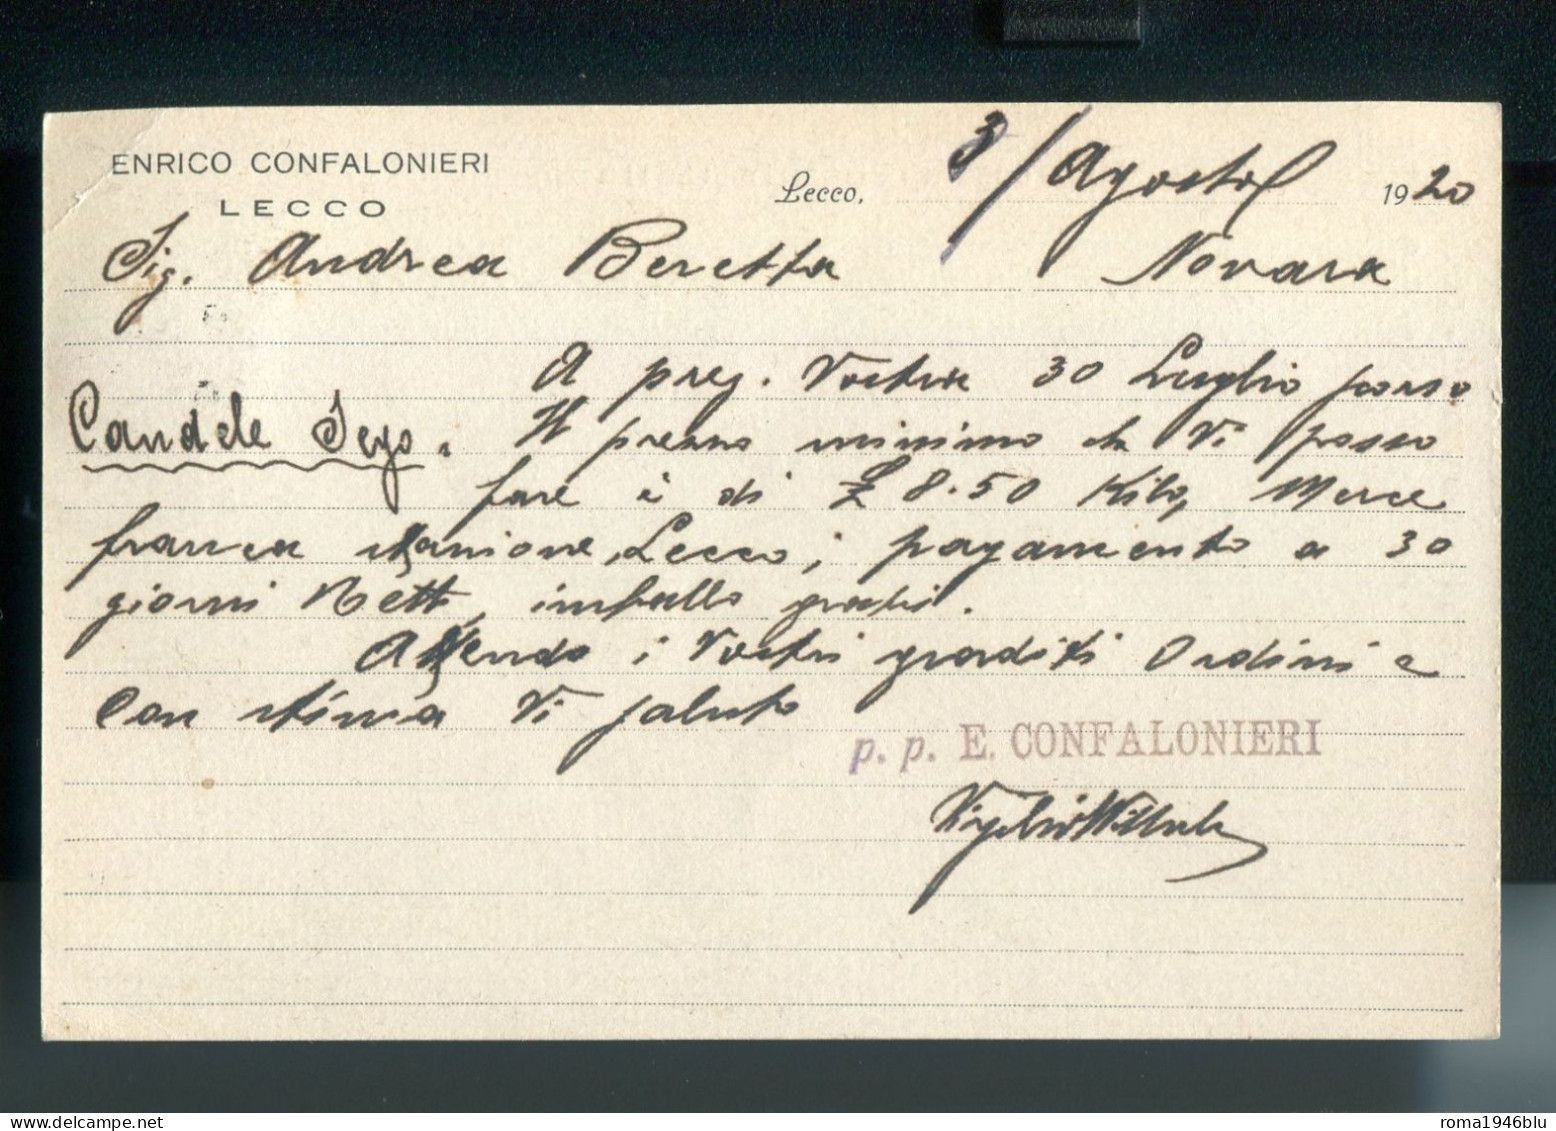 ENRICO CONFALONIERI
LECCO
Lecco, 3/ Agosto 1920
Sig. Andrea Beretta Novara
A preg. Vostra 30 Luglio scorso
Candele Sego. Il prezzo minimo che Vi posso
fare è di £ 8.50 Kilo, Merce
franca stazione Lecco; pagamento a 30
giorni Netti, imballo gratis.
Attendo i Vostri graditi Ordini e
con stima Vi saluto
p. p. E. CONFALONIERI
roma1946blu